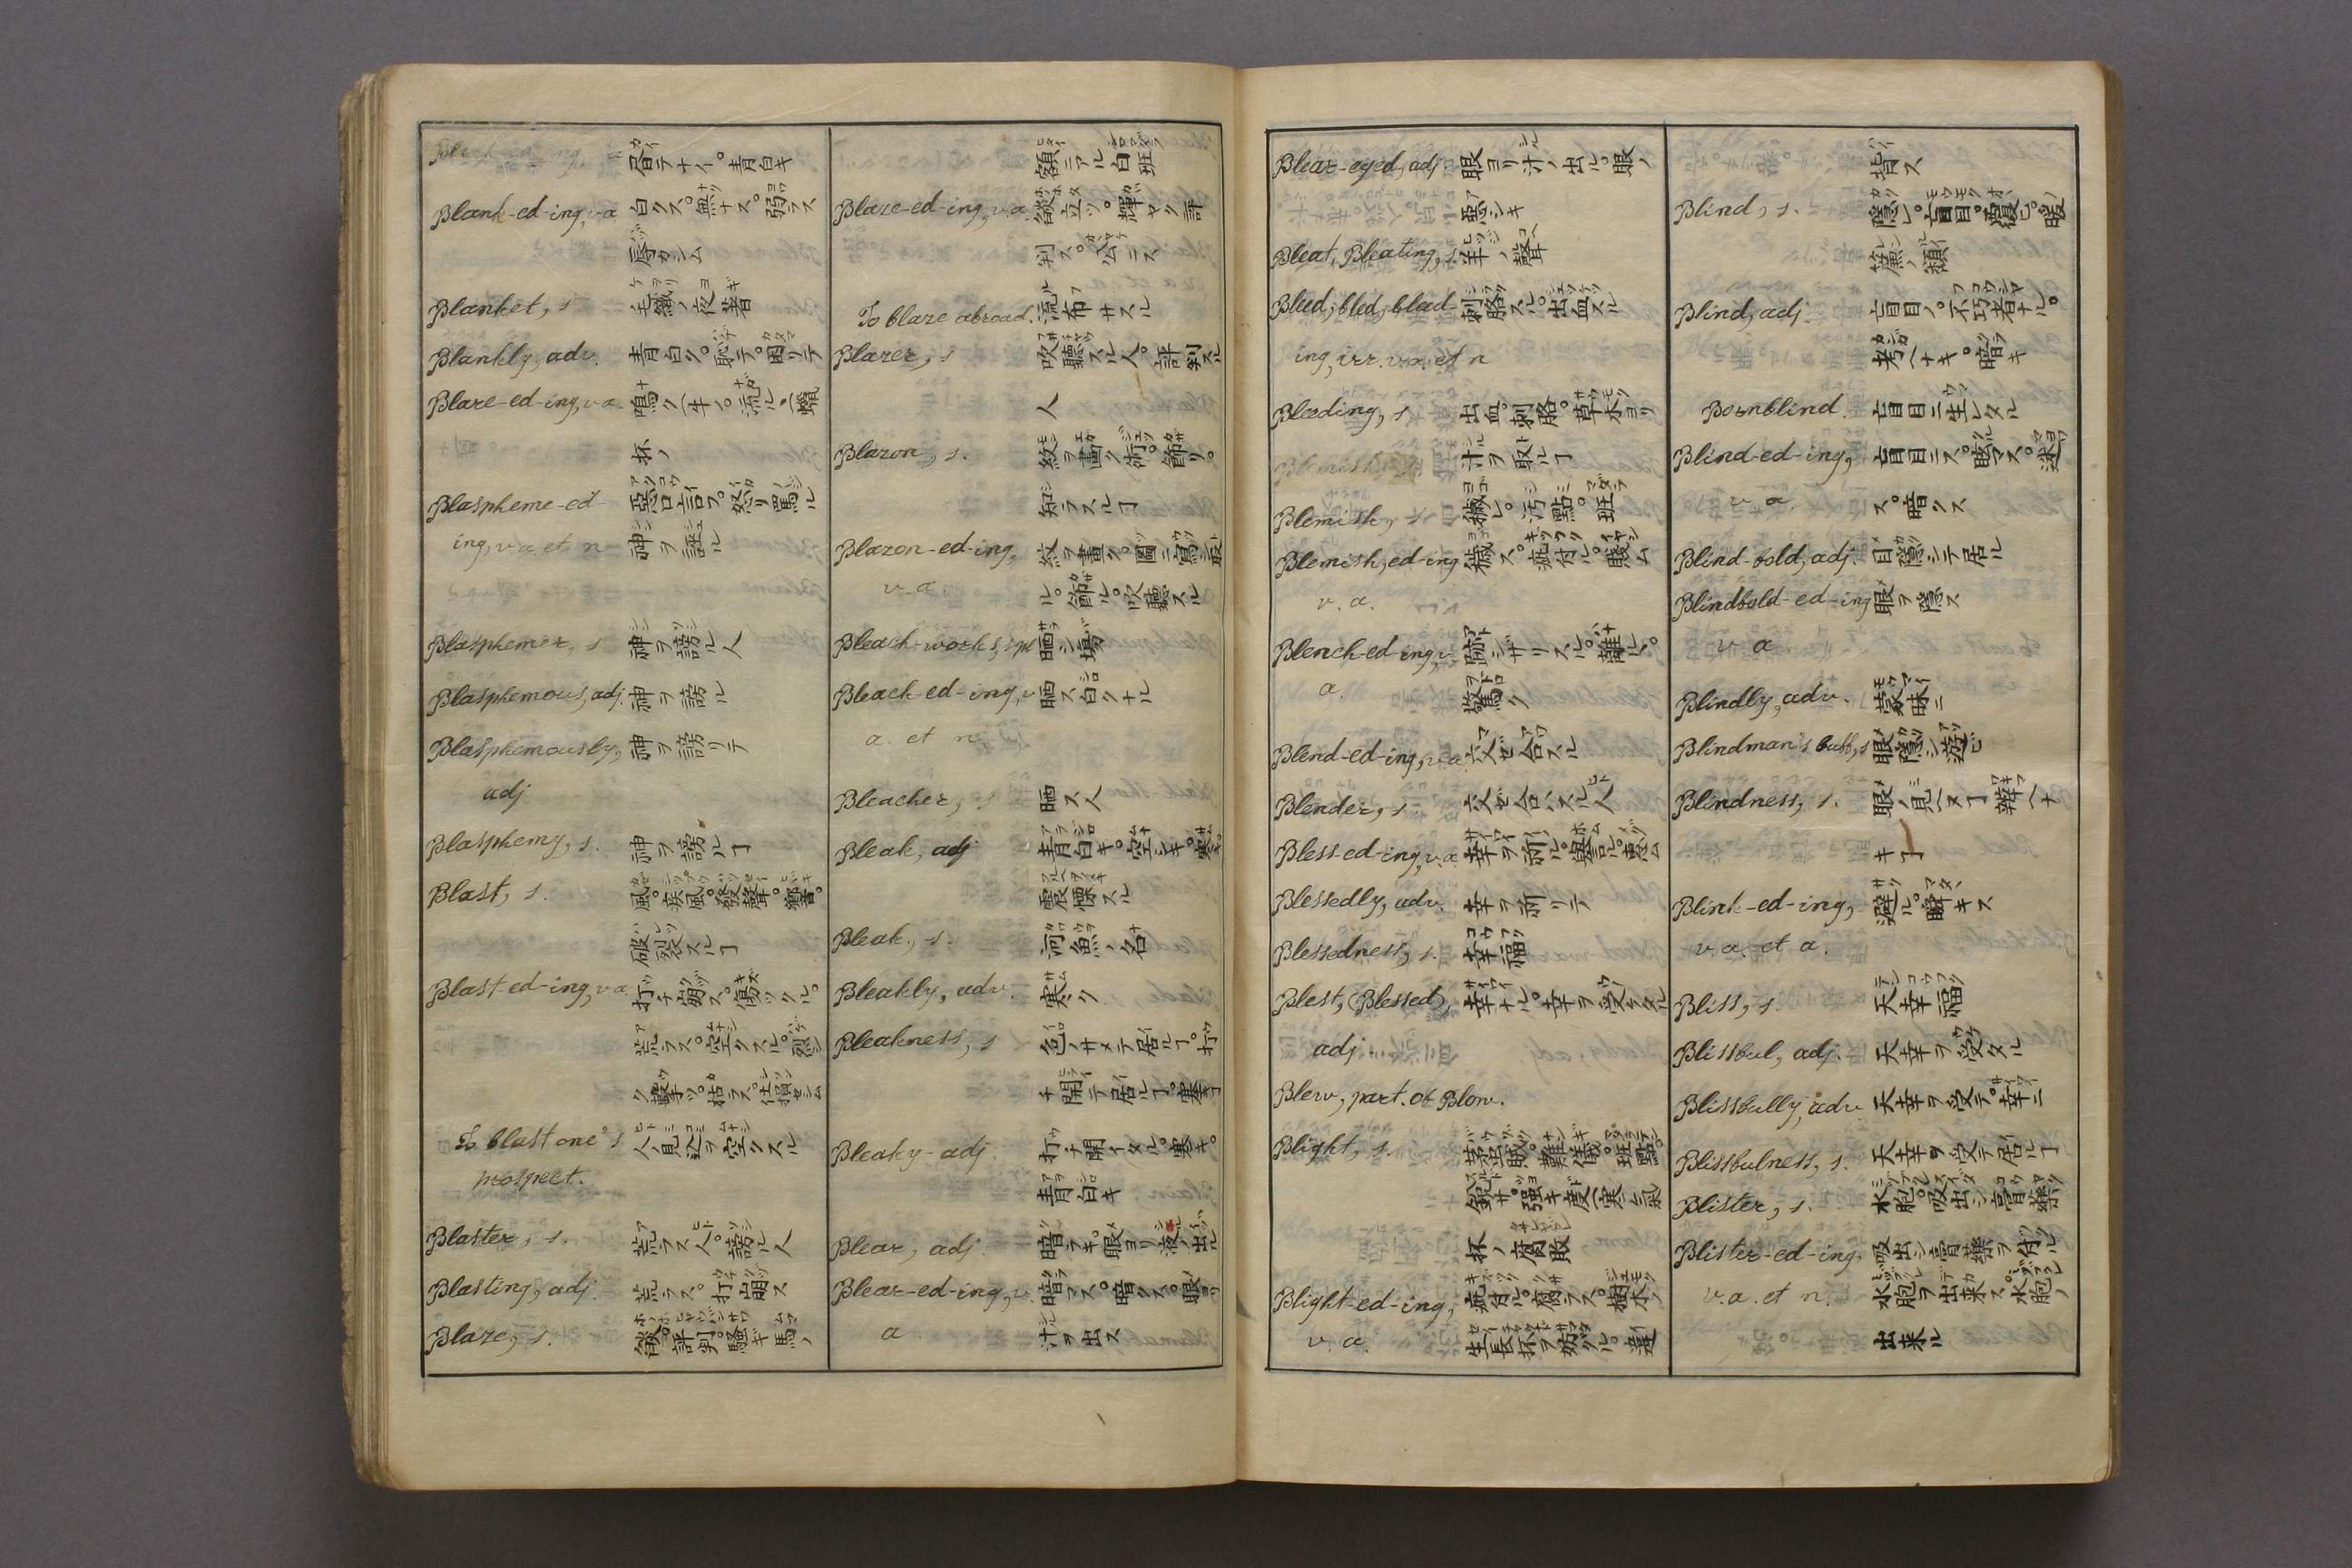 沓テナイ。青白キ
Blank-ed-ing, v a 白クス。無ナス。弱ラス
辱カシム
Blanket, s 毛織ノ夜著
Blankly, adv. 青白ク。恥テ。困リテ
Blare-ed-ing, v a. 鳴ク(牛ノ。流ル(蠟
杯ノ
Blaspheme-ed 惡口言フ。怒リ罵ル
ing, v a et n 神ヲ誣ル
Blasphemer, s 神ヲ謗ル人
Blasphemous, adj. 神ヲ謗ル
Blasphemously, 神ヲ謗リテ
adj
Blasphemy, s. 神ヲ謗ルヿ
Blast, s. 風。疾風。發聲。響。
破裂スルヿ
Blast-ed-ing, v a 打チ崩ス。傷ツクル。
荒ラス。空クスル。烈シ
ク擊ツ。枯ラス。仕損セシム
To blast one's 人ノ見込ヲ空クスル
prospect.
Blaster, s. 荒ラス人。謗ル人
Blasting, adj. 荒ラス。打崩ス
Blaze, s. 燄。評判。騒キ馬ノ
額ニアル白班
Blaze-ed-ing, v a 燄立ツ。輝ヤク評
判ス。公ケニス
To blaze abroad. 流布サスル
Blazer, s 吹聽スル人。評判スル
人
Blazon, s. 紋ヲ畫ク術。飾リ。
知ラスルヿ
Blazon-ed-ing, 紋ヲ畫ク。圖ニ寫シ取
v a. ル。飾ル。吹聽スル
Bleach-works, s pl 晒シ場
Bleach-ed-ing, v 晒ス白クナル
a. et n
Bleacher, s 晒ス人
Bleak, adj 青白キ。空シキ。寒キ。
震慄スル
Bleak, s. 河魚ノ名
Bleakly, adv. 寒ク
Bleakness, s 色ノサメテ居ルヿ。打
チ開テ居ルヿ。寒キヿ
Bleaky-adj. 打チ開イタル。寒キ。
青白キ
Blear, adj. 暗ラキ。眼ヨリ液ノ出ル
Blear-ed-ing, v. 暗マス。暗クス。眼ヨリ
a 汁ヲ出ス
Blear-eyed, adj. 眼ヨリ汁ノ出ル。眼ノ
惡シキ
Bleat, Bleating, s. 羊ノ聲
Bleed, bled, bleed 刺胳スル。出血スル
ing, irr. v.a. et n
Bleeding, s. 出血。刺胳。草木ヨリ
汁ヲ取ルヿ
Blemish, s 穢レ。汚點。班
Blemish, ed-ing 穢ス。疵付ル。賤ム
v. a.
Blench-ed-ing, v. 跡シサリスル。離ル。
a. 驚ク
Blend-ed-ing, v a. 交セ合スル
Blender, s 交セ合ハスル人
Bless-ed-ing, v.a 幸ヲ祈ル。譽ル。惠ム
Blessedly, adv. 幸ヲ祈リテ
Blessedness, s. 幸福
Blest, (Blessed), 幸ナル。幸ヲ受タル
adj.
Blew, part. of Blow.
Blight, s.
杯ノ腐敗
Blight-ed-ing, 疵付ル。腐ラス。樹木ノ
v. a. 生長杯ヲ妨クル。違
背ス
Blind, s. 隱レ。盲目。覆ヒ。暖
簾ノ類
Blind, adj. 盲目ノ。不巧者ナル。
考ヘナキ。暗キ
Bornblind. 盲目ニ生レタル
Blind-ed-ing, 盲目ニス。眩マス。迷ハ
v a. ス。暗クス
Blind-fold, adj. 目隱シテ居ル
Blindfold-ed-ing 眼ヲ隱ス
v a.
Blindly, adv. 蒙昧ニ
Blindman's buff, s 眼隱シ遊ヒ
Blindness, s. 眼ノ見ヘヌヿ辨ヘナ
キヿ
Blink-ed-ing, 避ル。瞬キス
v. a. et a.
Bliss, s. 天幸福
Blissful, adj. 天幸ヲ受タル
Blissfully, adv 天幸ヲ受テ。幸ニ
Blissfulness, s. 天幸ヲ受テ居ルヿ
Blister, s. 水胞。吸出シ膏藥
Blister-ed-ing, 吸出シ膏藥ヲ付ル
v. a. et n. 水胞ヲ出来ス水胞ノ
出来ル